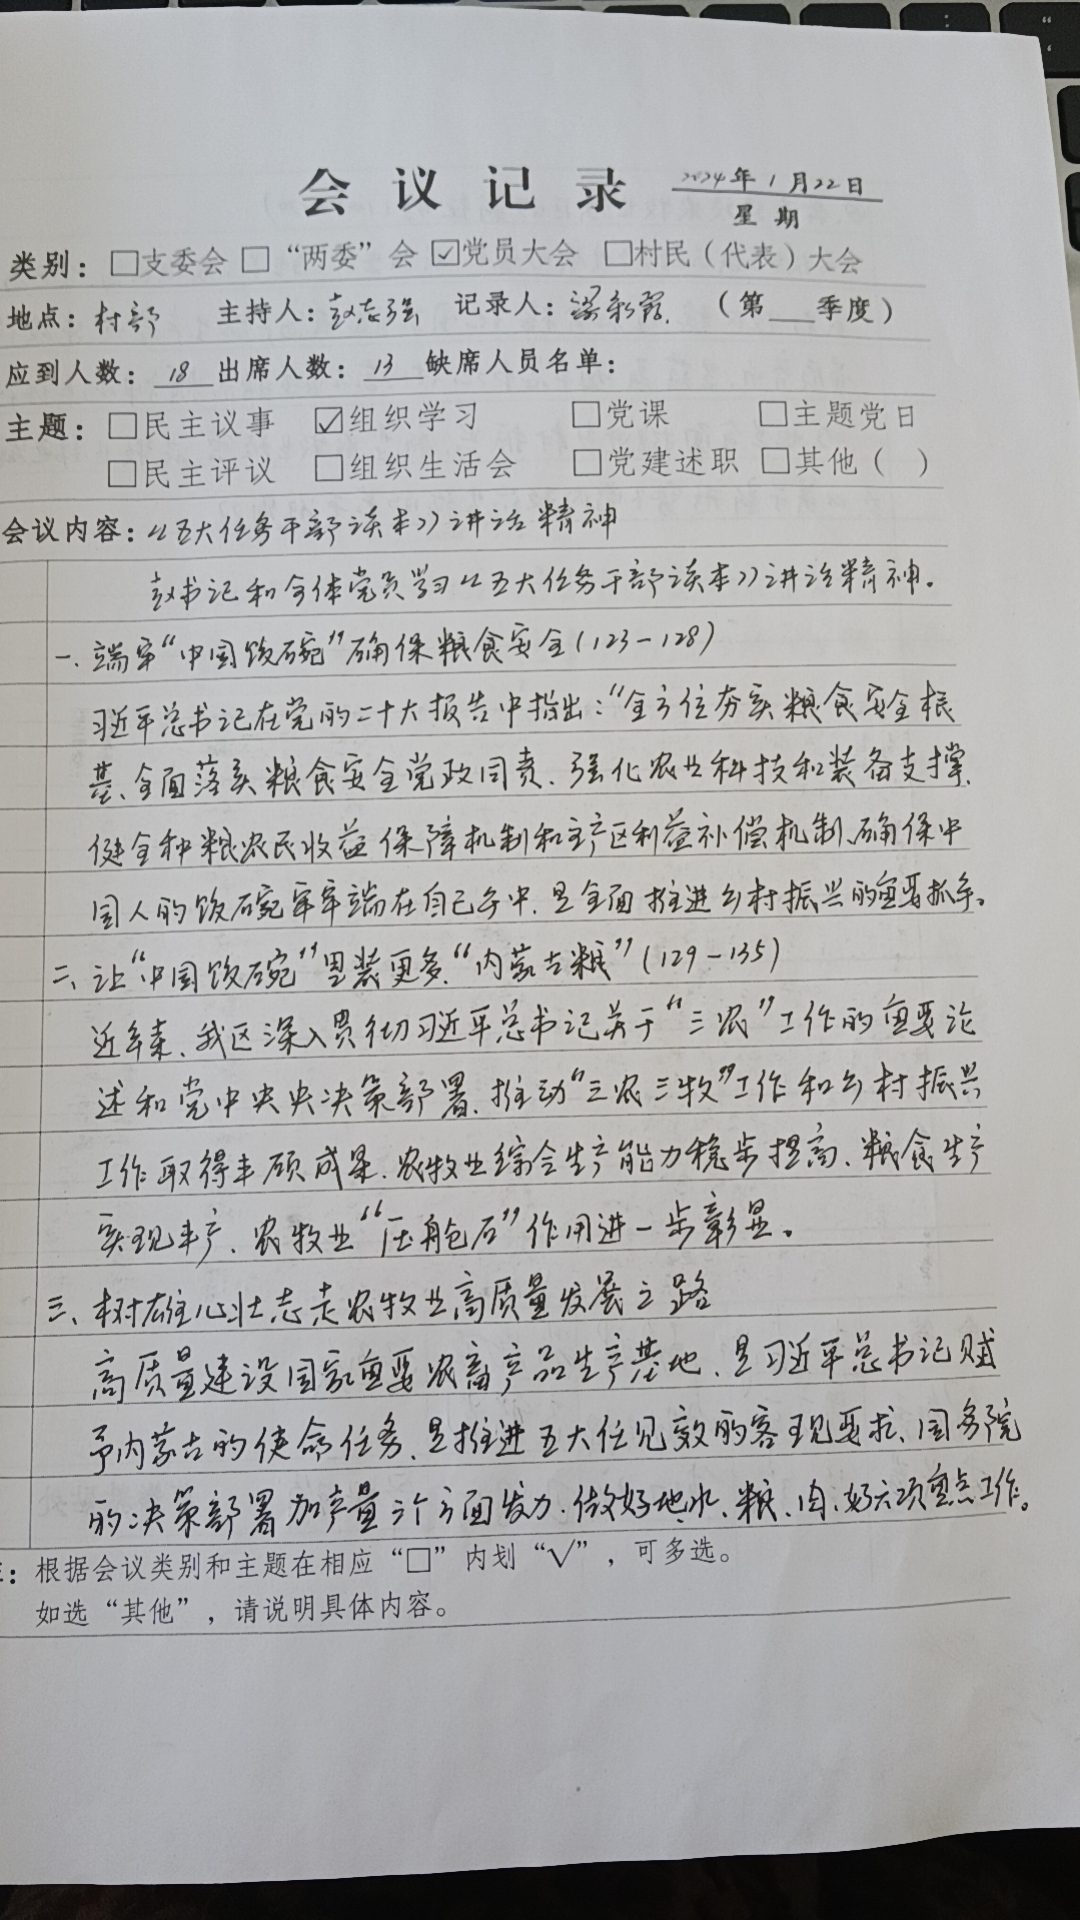 会议记录 2024年1月22日
星期
类别：□支委会 □“两委”会 ☑党员大会 □村民（代表）大会
地点：村部 主持人：赵志强 记录人：梁彩霞 （第___季度）
应到人数：18 出席人数：13 缺席人员名单：
主题：□民主议事 ☑组织学习 □党课 □主题党日
□民主评议 □组织生活会 □党建述职 □其他（ ）
会议内容：《五大任务干部读本》讲话精神
赵书记和全体党员学习《五大任务干部读本》讲话精神。
一、端牢“中国饭碗”确保粮食安全(123-128)
习近平总书记在党的二十大报告中指出：“全方位夯实粮食安全根
基、全面落实粮食安全党政同责、强化农业科技和装备支撑、
健全种粮农民收益保障机制和主产区利益补偿机制、确保中
国人的饭碗牢牢端在自己手中、是全面推进乡村振兴的重要抓手。
二、让“中国饭碗”里装更多“内蒙古粮”(129-135)
近年来、我区深入贯彻习近平总书记关于“三农”工作的重要论
述和党中央央决策部署、推动“三农三牧”工作和乡村振兴
工作取得丰硕成果、农牧业综合生产能力稳步提高、粮食生产
实现丰产、农牧业“压舱石”作用进一步彰显。
三、树雄心壮志走农牧业高质量发展之路
高质量建设国家重要农畜产品生产基地、是习近平总书记赋
予内蒙古的使命任务、是推进五大任见效的客观要求、国务院
的决策部署加产量三个方面发力、做好地、水、粮、肉、奶六项重点工作。
：根据会议类别和主题在相应“□”内划“√”，可多选。
如选“其他”，请说明具体内容。